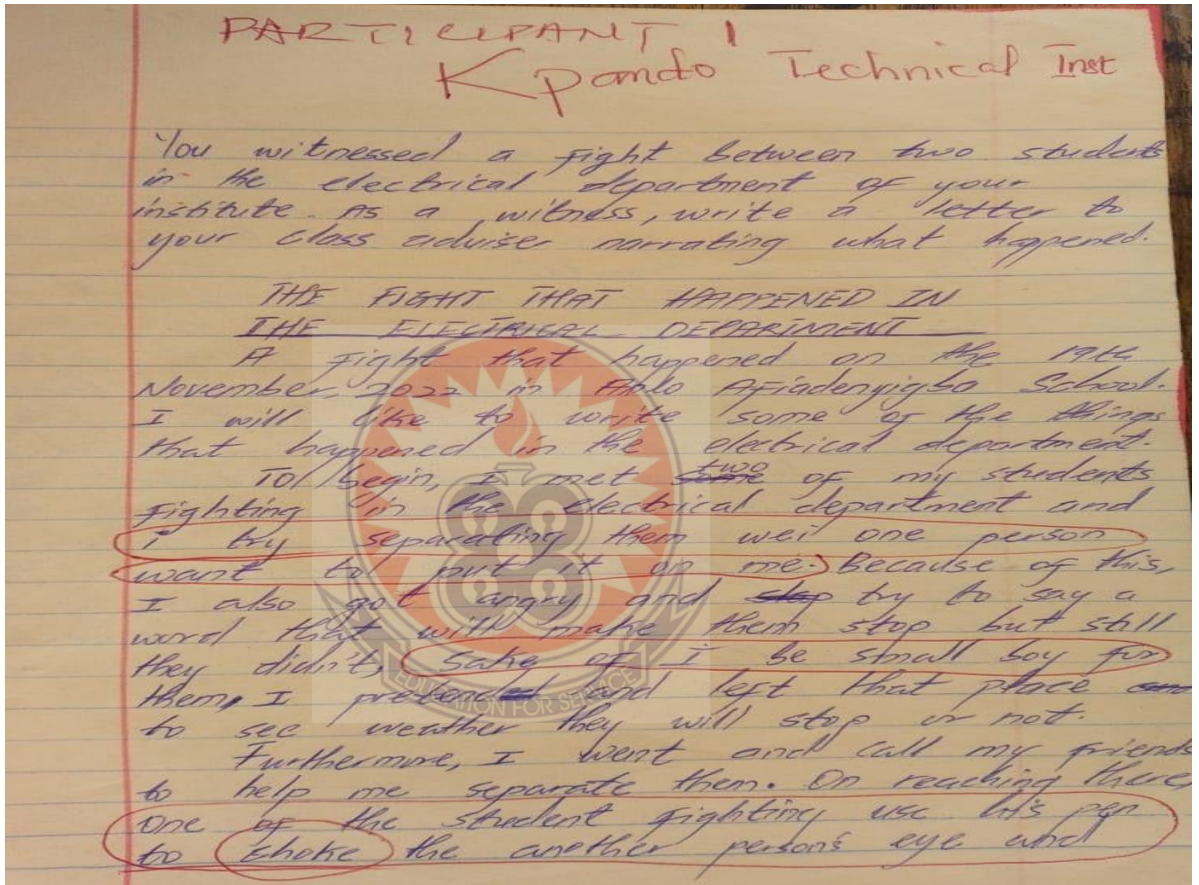 PARTICIPANT 1
Kpando Technical Inst
You witnessed a fight between two students
in the electrical department of your
institute. As a witness, write a letter to
your class adviser narrating what happened.
THE FIGHT THAT HAPPENED IN
THE ELECTRICAL DEPARTMENT
A fight that happened on the 19th
November, 2022 in Afiadenyigba School.
I will like to write some of the things
that happened in the electrical department.
To begin, I met two of my students
fighting in the electrical department and
i try separating them wei one person
want to put it on me. Because of this,
I also got angry and try to say a
word that will make them stop but still
they didn't, Sake of I be small boy for
them, I pretend and left that place
to see weather they will stop or not.
Furthermore, I went and call my friends
to help me separate them. On reaching there,
one of the student fighting use his pen
to choke the another person's eye and
EDUCATION FOR SERVICE